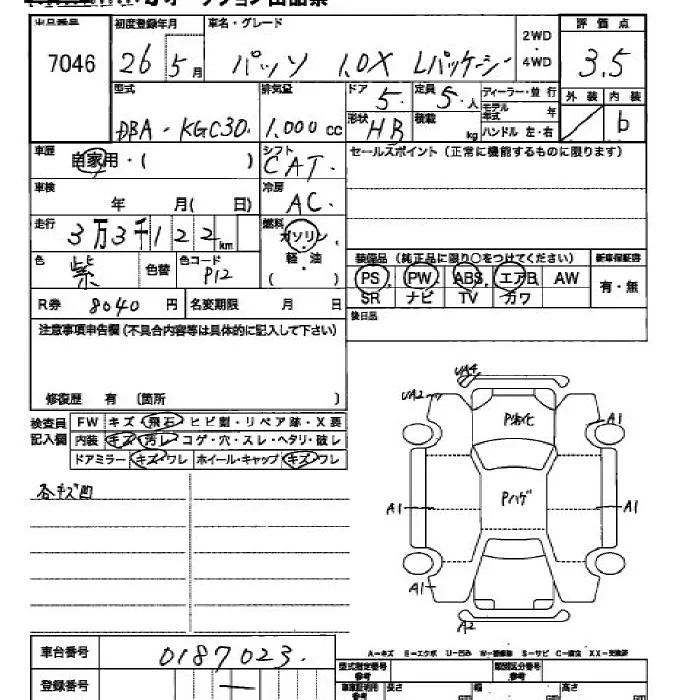 オークション出品票
出品番号 初度登録年月 車名・グレード 2WD・4WD 評価点
7046 26 5月 パッソ 1.0X Lパッケージ 3.5
型式 排気量 ドア 定員 ディーラー・並行 外装 内装
5. 5.人 モデル年式 年
DBA-KGC30. 1.000cc 形状 HB 積載 kg ハンドル 左・右 b
車歴 自家用・( ) シフト CAT. セールスポイント(正常に機能するものに限ります)
車検 年 月( 日) 冷房 AC.
走行 3万3千122km 燃料 ガソリン・軽・油 ( )
色 紫 色替 色コード P12
装備品(純正品に限り○をつけてください) 新車保証書
PS PW ABS エアB AW 有・無
SR ナビ TV カワ
R券 8040円 名変期限 月 日 後日品
注意事項申告欄(不具合内容等は具体的に記入して下さい)
修復歴 有 〔箇所 〕
検査員記入欄 FW キズ・飛石・ヒビ割・リペア跡・X要
内装 キズ・汚レ・コゲ・穴・スレ・ヘタリ・破レ
ドアミラー キズ・ワレ ホイール・キャップ キズ・ワレ
各キズ凹
UA4
UA2
P劣化
A1
Pハゲ
A1 A1
A1
A2
A-キズ E-エクボ U-凹み W-補修跡 S-サビ C-腐食 XX-交換済
車台番号 0187023. 型式指定番号 参考 類別区分番号 参考
登録番号 — 車庫証明用 参考 長さ 幅 高さ